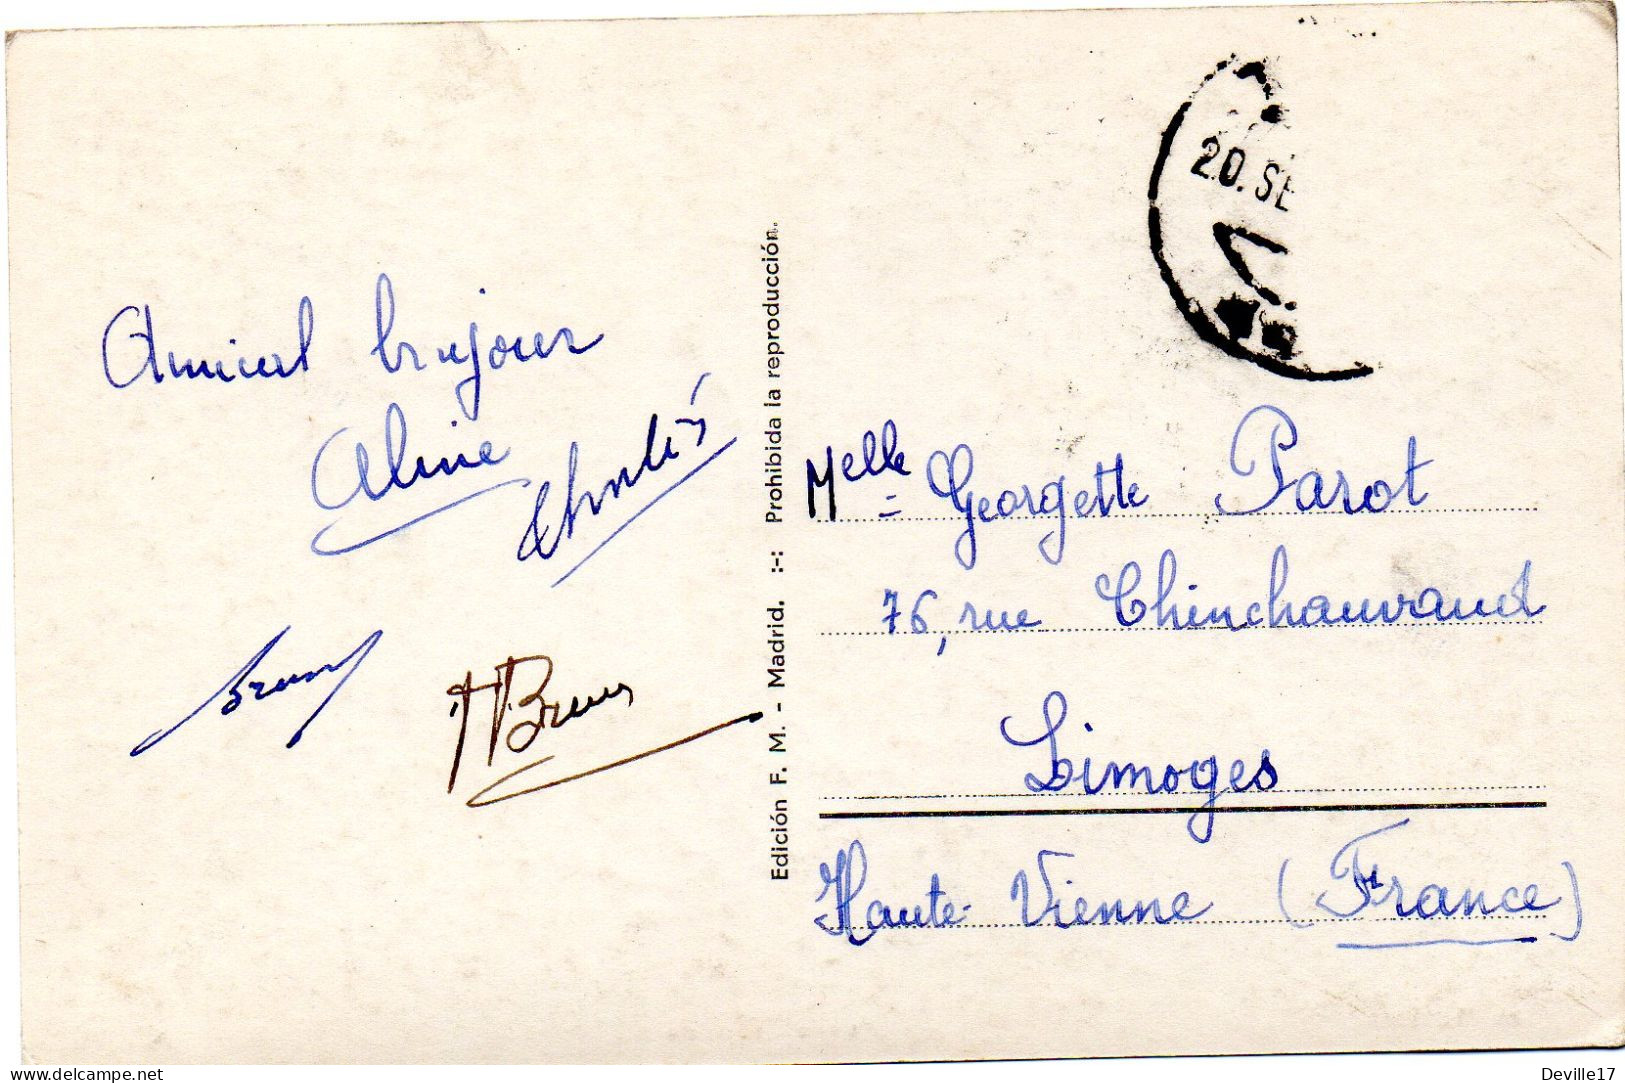 20. SE
Amical bonjour
Aline
Charles
Bruno
HBrun
Edición F. M. - Madrid. :-: Prohibida la reproducción.
Melle Georgette Parot
76, rue Chinchauvaud
Limoges
Haute-Vienne (France)
delcampe.net
Deville17